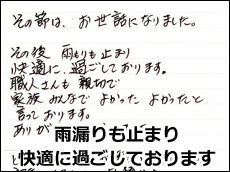 その節は、お世話になりました。
その後 雨もりも止まり
快適に、過ごしております。
職人さんも 親切で
家族 みんなで よかった よかったと
言っております。
ありが
雨漏りも止まり
快適に過ごしております